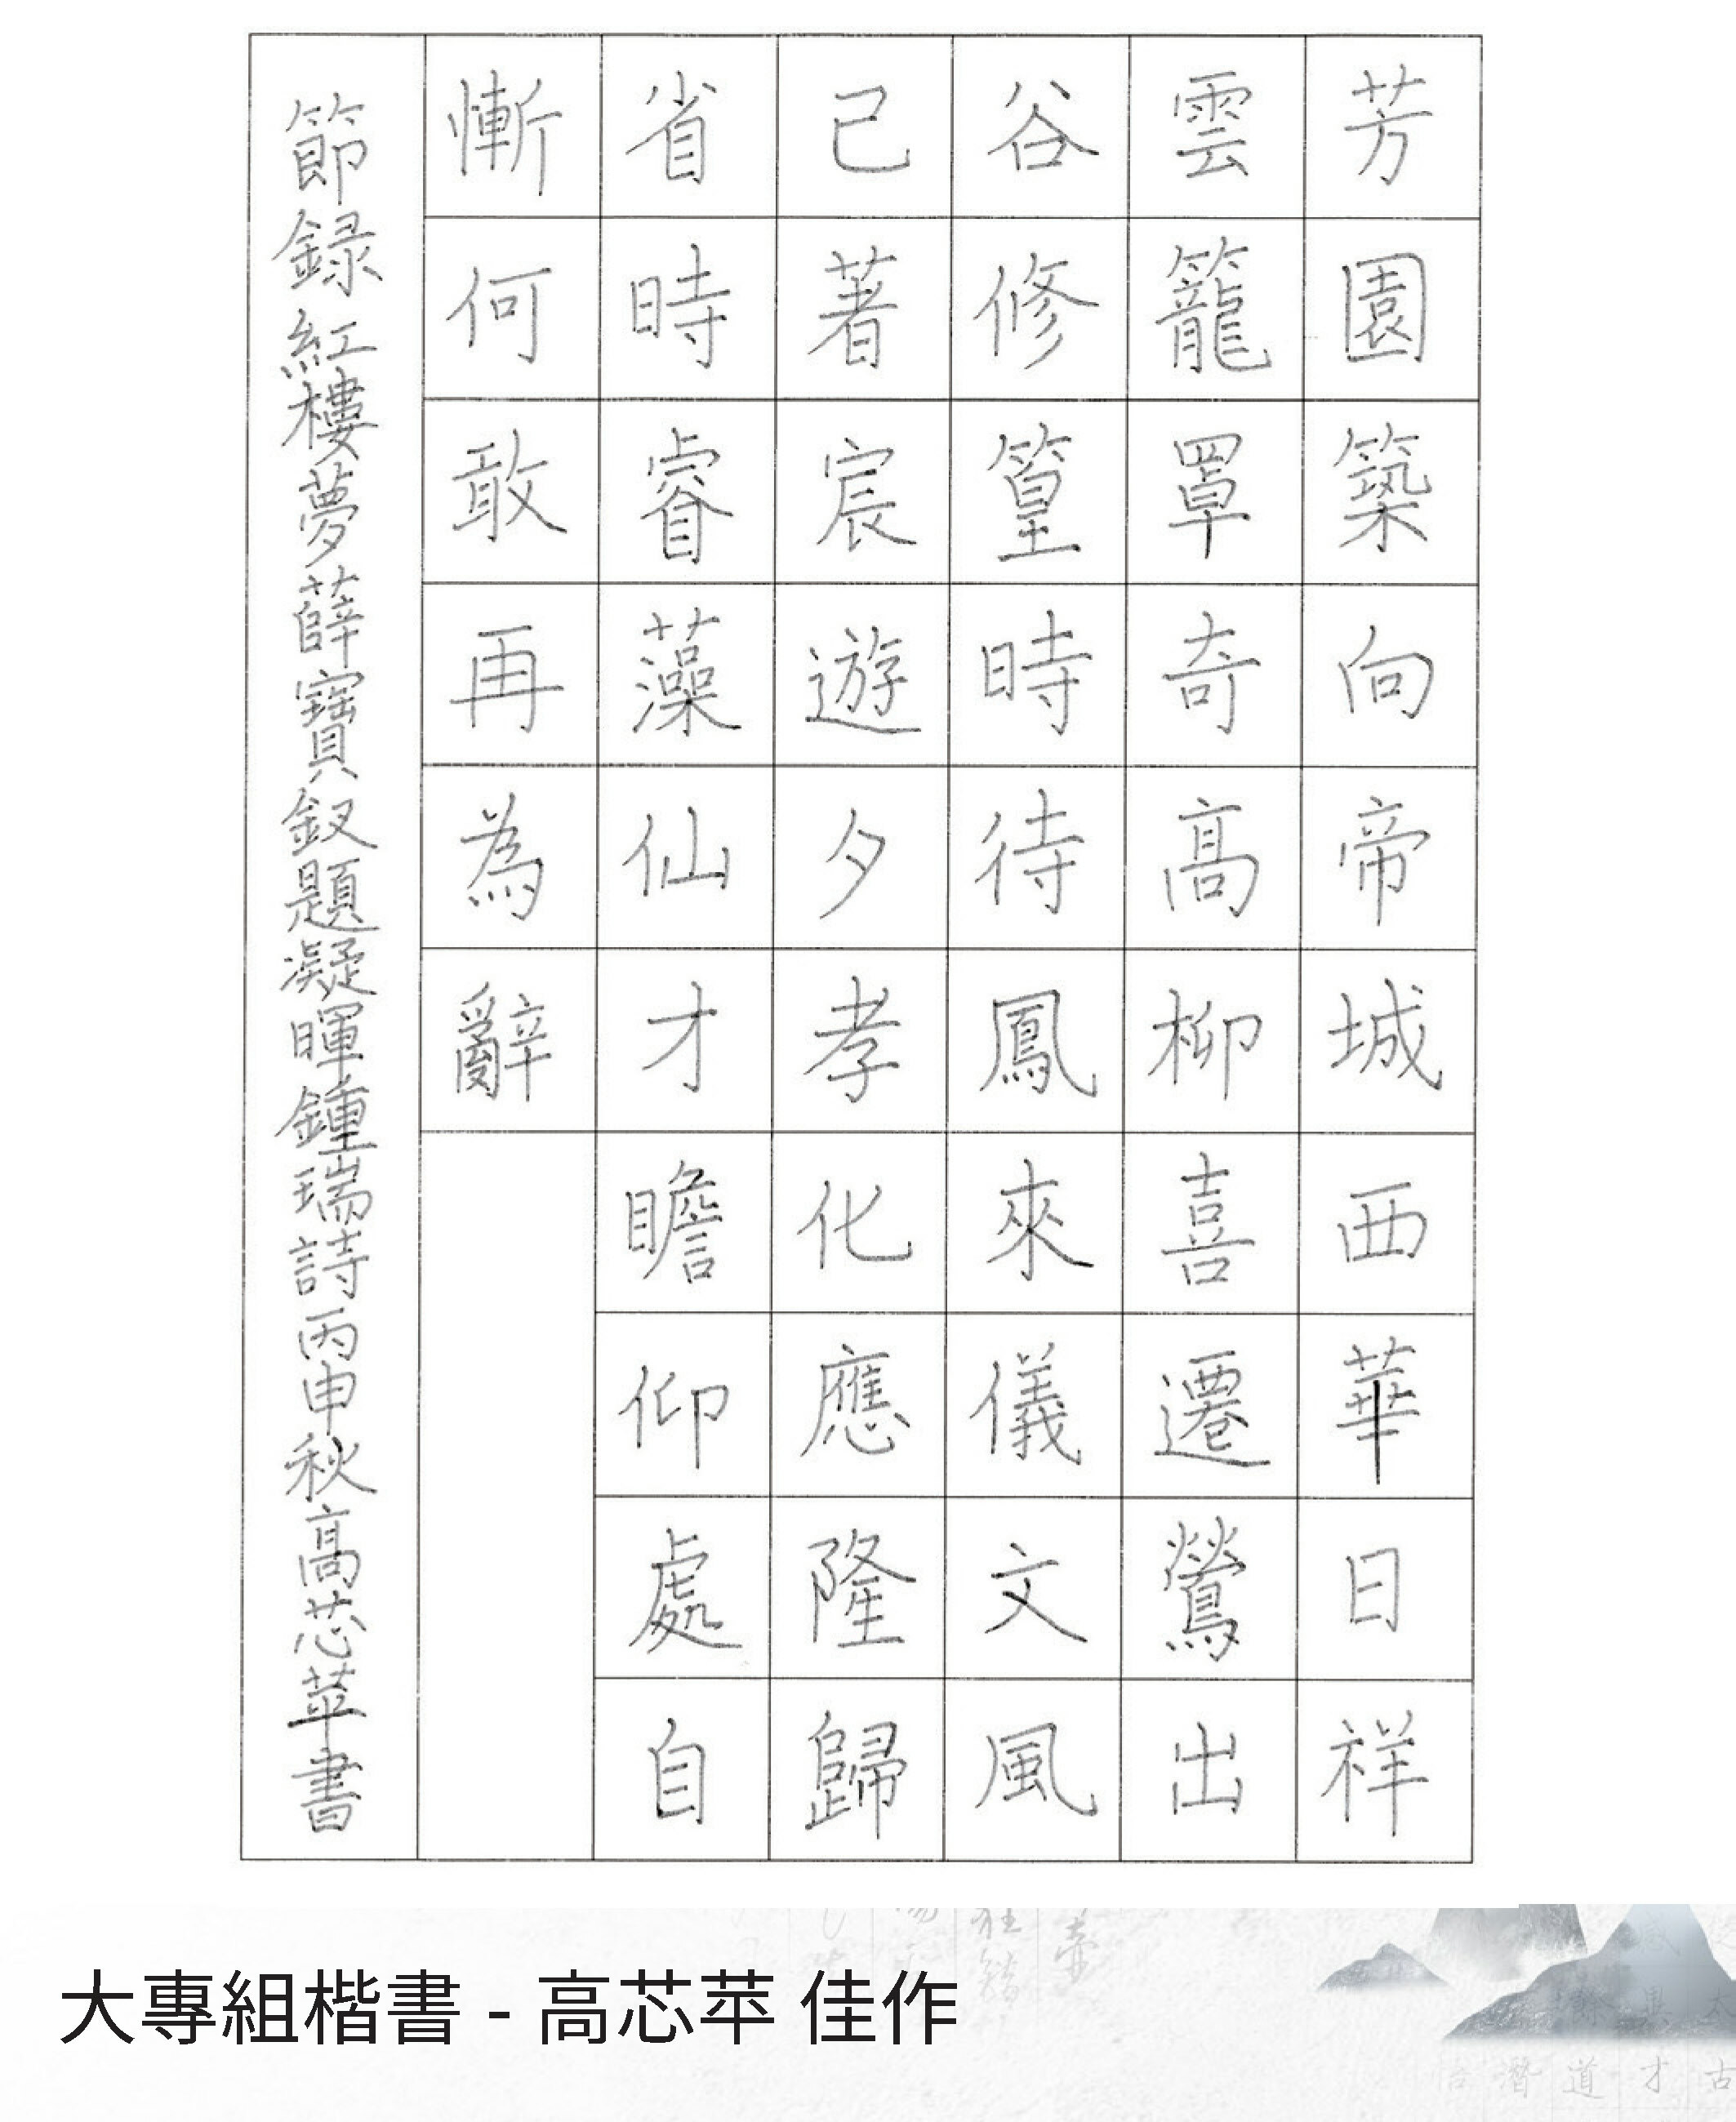 芳園築向帝城西華日祥
雲籠罩奇高柳喜遷鶯出
谷修篁時待鳳來儀文風
已著宸遊夕孝化應隆歸
省時睿藻仙才瞻仰處自
慚何敢再為辭
節録紅樓夢薛寶釵題凝暉鍾瑞詩丙申秋高芯苹書
大專組楷書 - 高芯苹 佳作